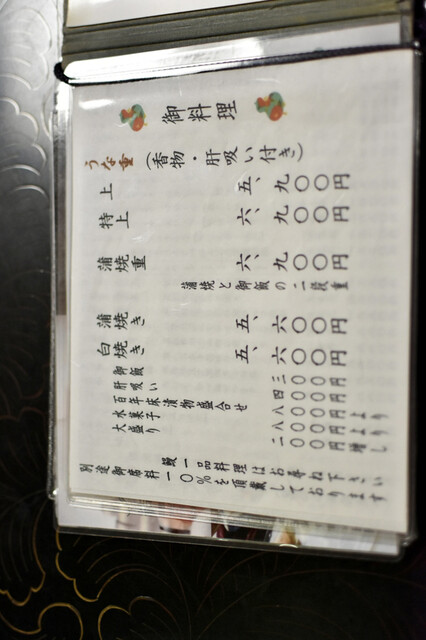 御料理
うな重 (香物・肝吸い付き)
上 五、九〇〇円
特上 六、九〇〇円
蒲焼重 六、九〇〇円
蒲焼と御飯の二段重
蒲焼き 五、六〇〇円
白焼き 五、六〇〇円
御飯 三〇〇円
肝吸い 四〇〇円
百年床漬物盛合せ 八〇〇円より
水菓子 八〇〇円より
大盛り 二〇〇円増し
鰻一品料理はお尋ね下さい
別途御席料一〇%を頂戴しております